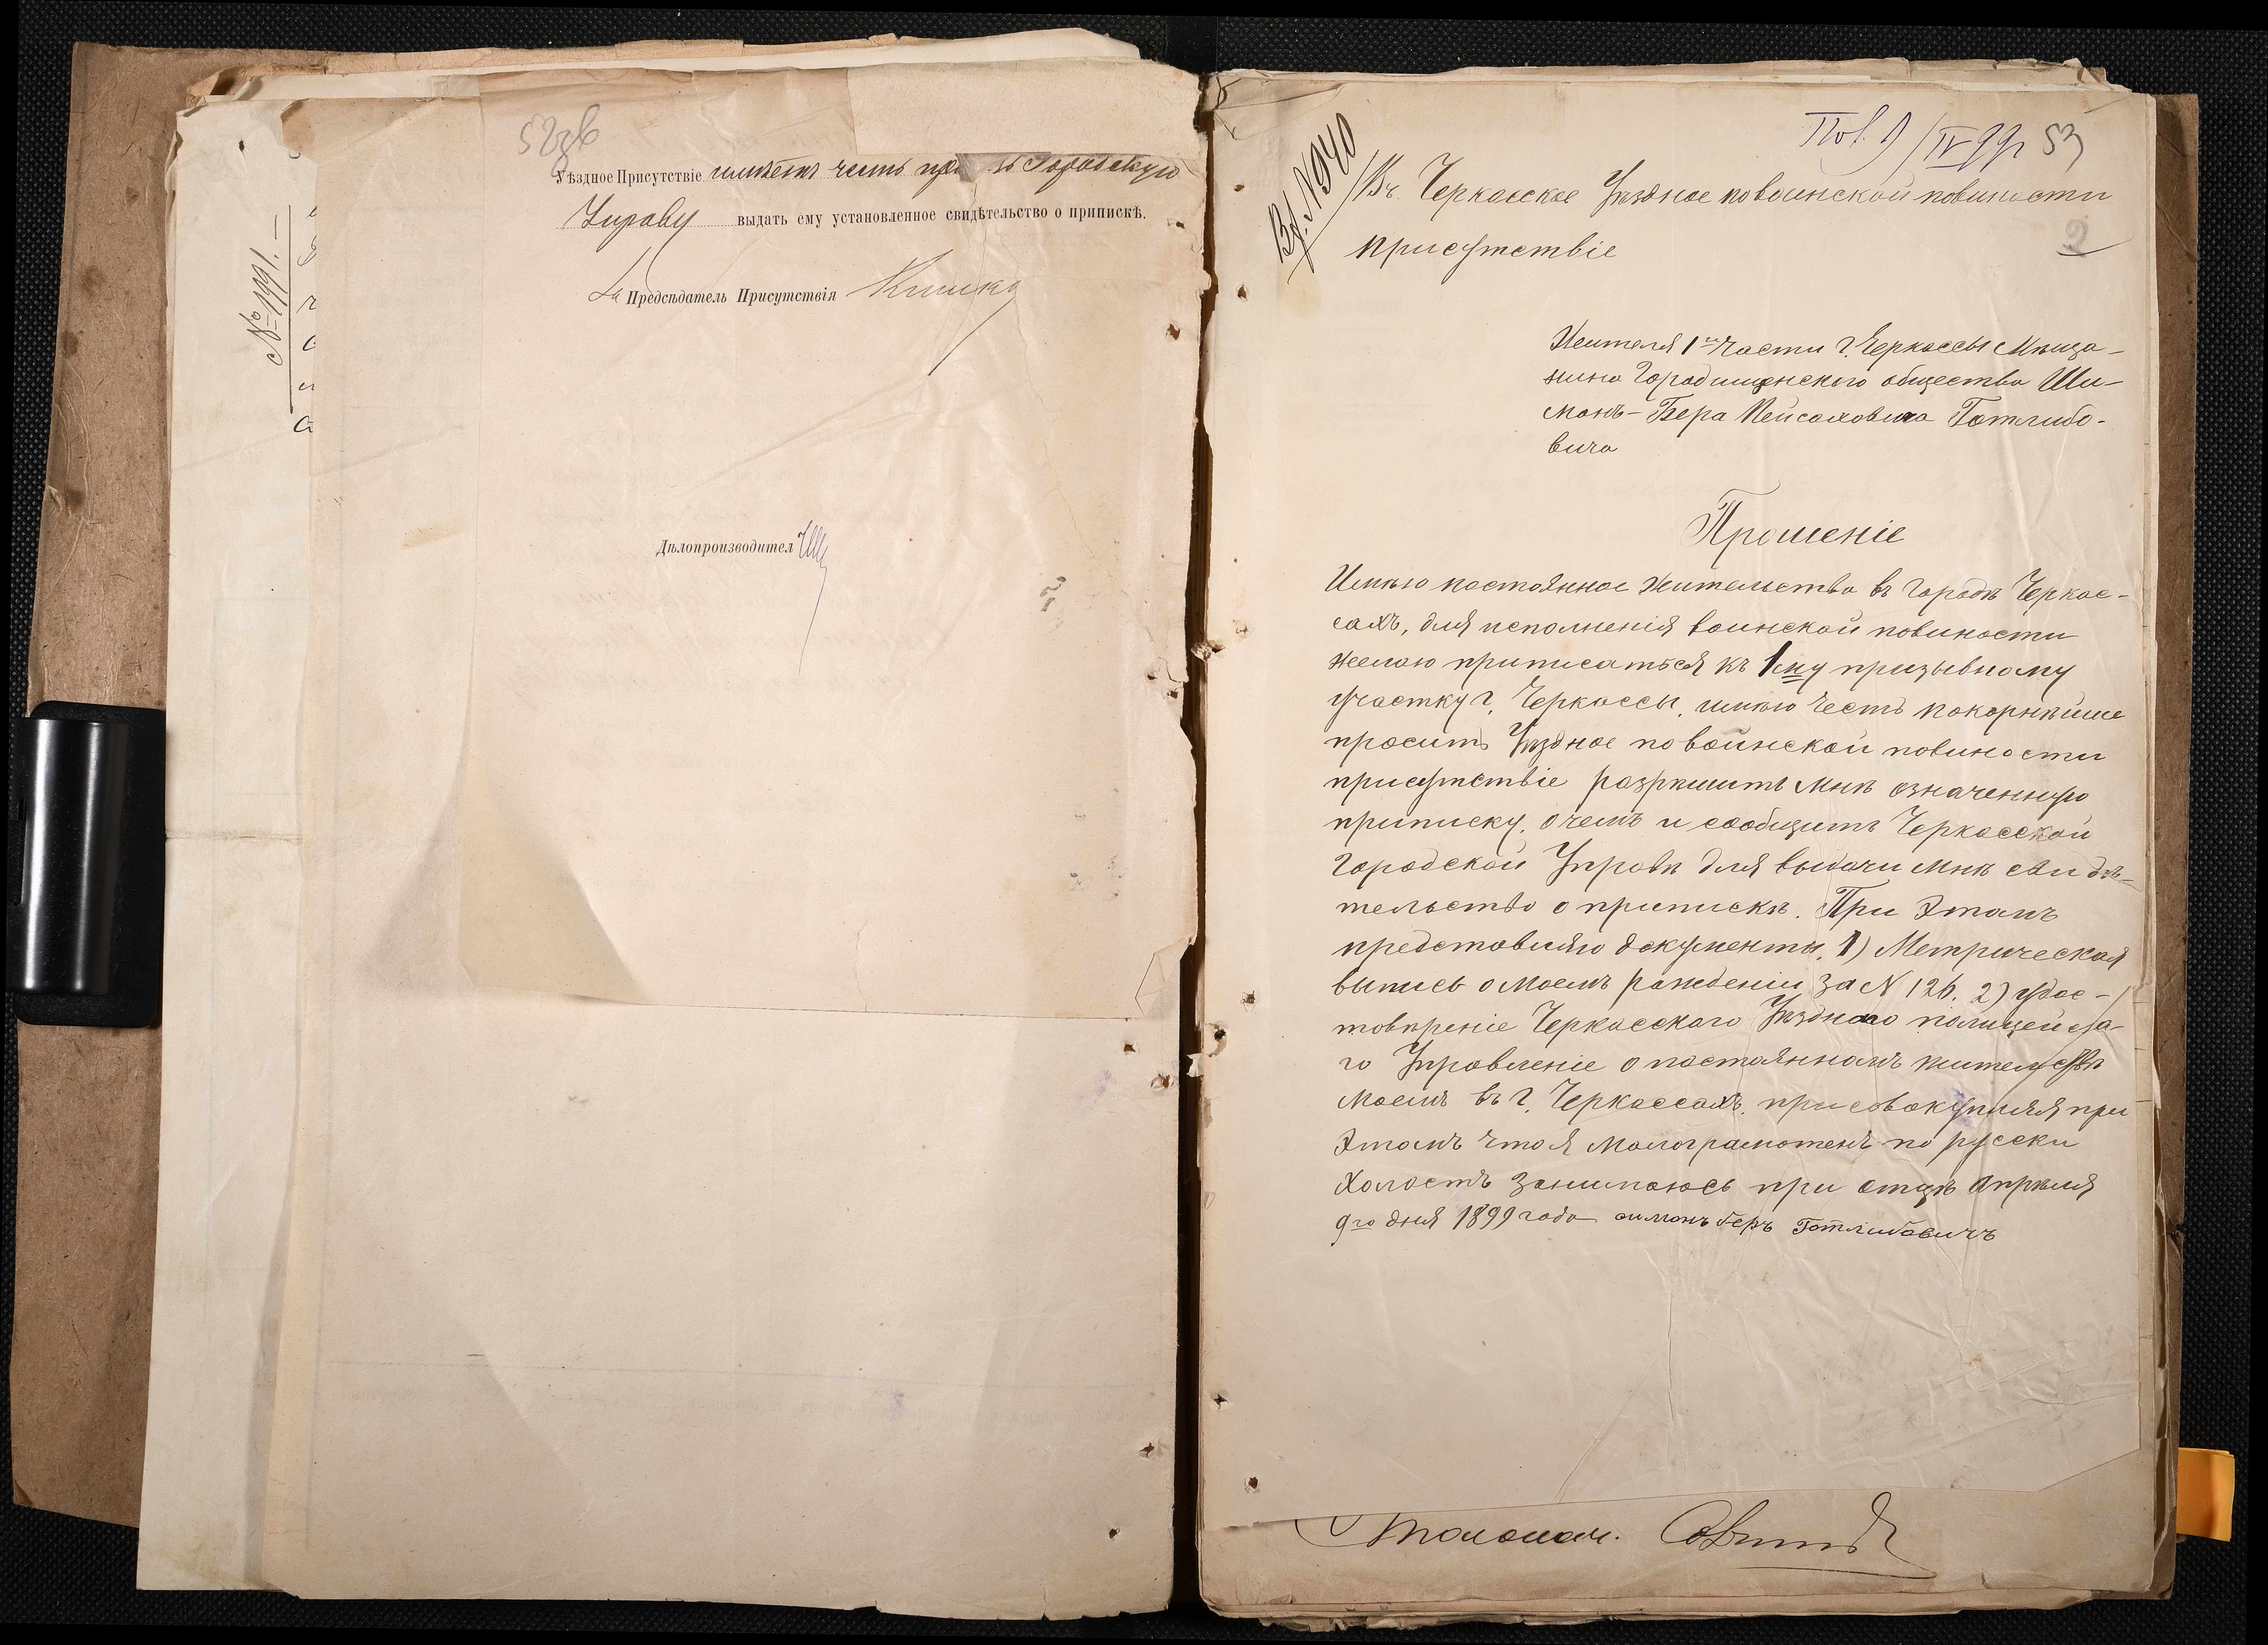 52зв
Уѣздное Присутствіе имѣетъ честь Городскую
Управу выдать ему установленное свидѣтельство о припискѣ.
За Предсѣдатель Присутствія
Дѣлопроизводител
№ 1991.
Вх. № 940
Пол. 9/IV 99г 53
Въ Черкасское Уѣздное по воинской повиности
2
присутствіе
Жителя 1й части г. Черкассы Мѣща-
нина Городищенского общества Ши-
монъ-Бера Пейсаховича Готлибо-
вича
Прошеніе
Имѣю постоянное жительство въ городѣ Черкас-
сахъ, для исполненія воинской повиности
желаю приписаться къ 1му призывному
участку г. Черкассы, имѣю честь покорнѣише
просить Уѣздное по воинской повиности
присутствіе разрѣшить мнѣ означенную
приписку, о чемъ и сообщить Черкасской
городской Управѣ для выдачи мнѣ свидѣ-
тельство о припискѣ. При этомъ
представляю документы, 1) Метрическая
выпись о моемъ рождении за N 126. 2) удос-
товѣреніе Черкасского Уѣздного полицейска-
го Управленіе о постоянномъ жительствѣ
моемъ въ г. Черкассахъ, присовокупляя при
этомъ что я малограмотенъ по русски
холостъ занимаюсь при отцѣ Апрѣля
9го дня 1899 года симонъ беръ Готлибовичъ
Столонач.